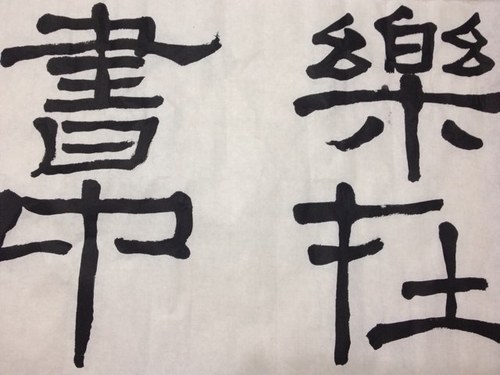 樂在
書中